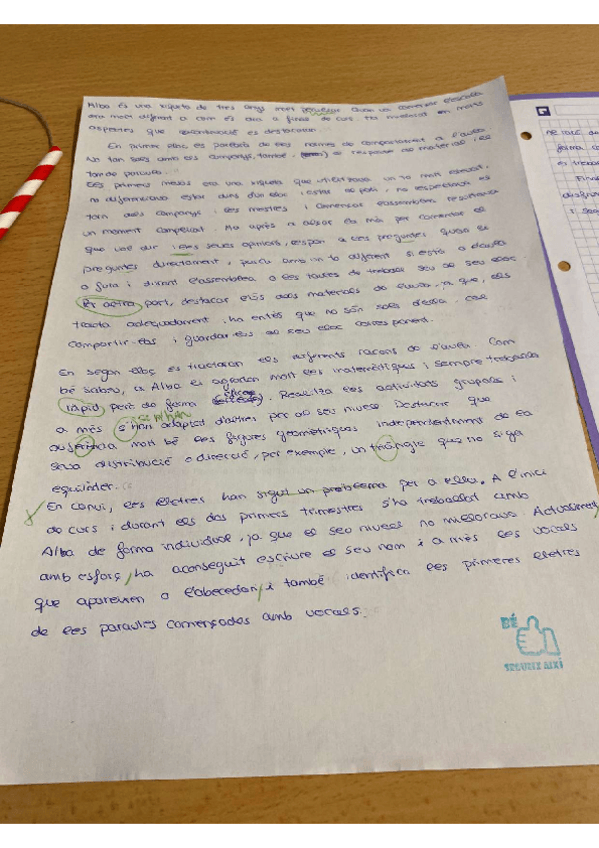 Alba és una xiqueta de tres anys molt peculiar. Quan va començar l'escola
era molt diferent a com és ara a finals de curs. Ha millorat en molts
aspectes que a continuació es destacaran.
En primer lloc es parlarà de les normes de comportament a l'aula.
No tan sols amb els companys, també el respecte al material i el
to de paraula.
Els primers mesos era una xiqueta que utilitzava un to molt elevat,
no diferenciava estar dins d'un lloc i estar al pati, no respectava els
torn dels companys i les mestres i començar l'assemblea resultava
un moment complicat. Ha après a alçar la mà per comentar el
que vol dir i les seues opinions, respon a les preguntes quan es
pregunten directament, parla amb un to diferent si està a l'aula
o fora i durant l'assemblea o les taules de treball seu al seu lloc.
Per altra part, destacar els dos materials de l'aula, ja que, els
tracta adequadament, ha entés que no són sols d'ella, cal
compartir-los i guardar-los al seu lloc corresponent.
En segon lloc es tractaran els diferents racons de l'aula. Com
bé sabeu, a Alba li agraden molt les matemàtiques i sempre treballa
ràpid però de forma eficaç. Realitza les activitats grupals i
se n'han
a més s'han adaptat d'altres per al seu nivell. Destacar que
diferència molt bé les figures geomètriques independentment de la
seua distribució o direcció, per exemple, un triàngle que no siga
equilàter.
En canvi, les lletres han sigut un problema per a ella. A l'inici
de curs i durant els dos primers trimestres s'ha treballat amb
Alba de forma individual, ja que el seu nivell no millorava. Actualment,
amb esforç, ha aconseguit escriure el seu nom i a més les vocals
que apareixen a l'abecedari, i també identifica les primeres lletres
de les paraules començades amb vocals.
BÉ
SEGUEIX AIXÍ